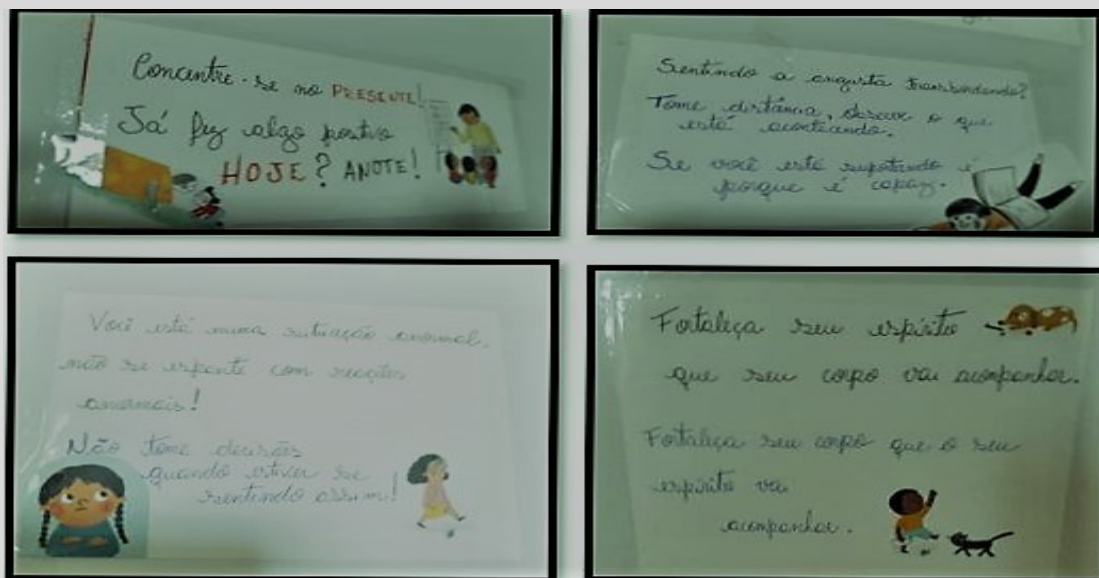 Concentre-se no PRESENTE!
Já fez algo positivo
HOJE? ANOTE!
Sentindo a angústia transbordando?
Tome distância, observe o que
está acontecendo.
Se você está suportando é
porque é capaz.
Você está numa situação anormal,
não se espante com reações
anormais!
Não tome decisões
quando estiver se
sentindo assim!
Fortaleça seu espírito
que seu corpo vai acompanhar.
Fortaleça seu corpo que o seu
espírito vai
acompanhar.